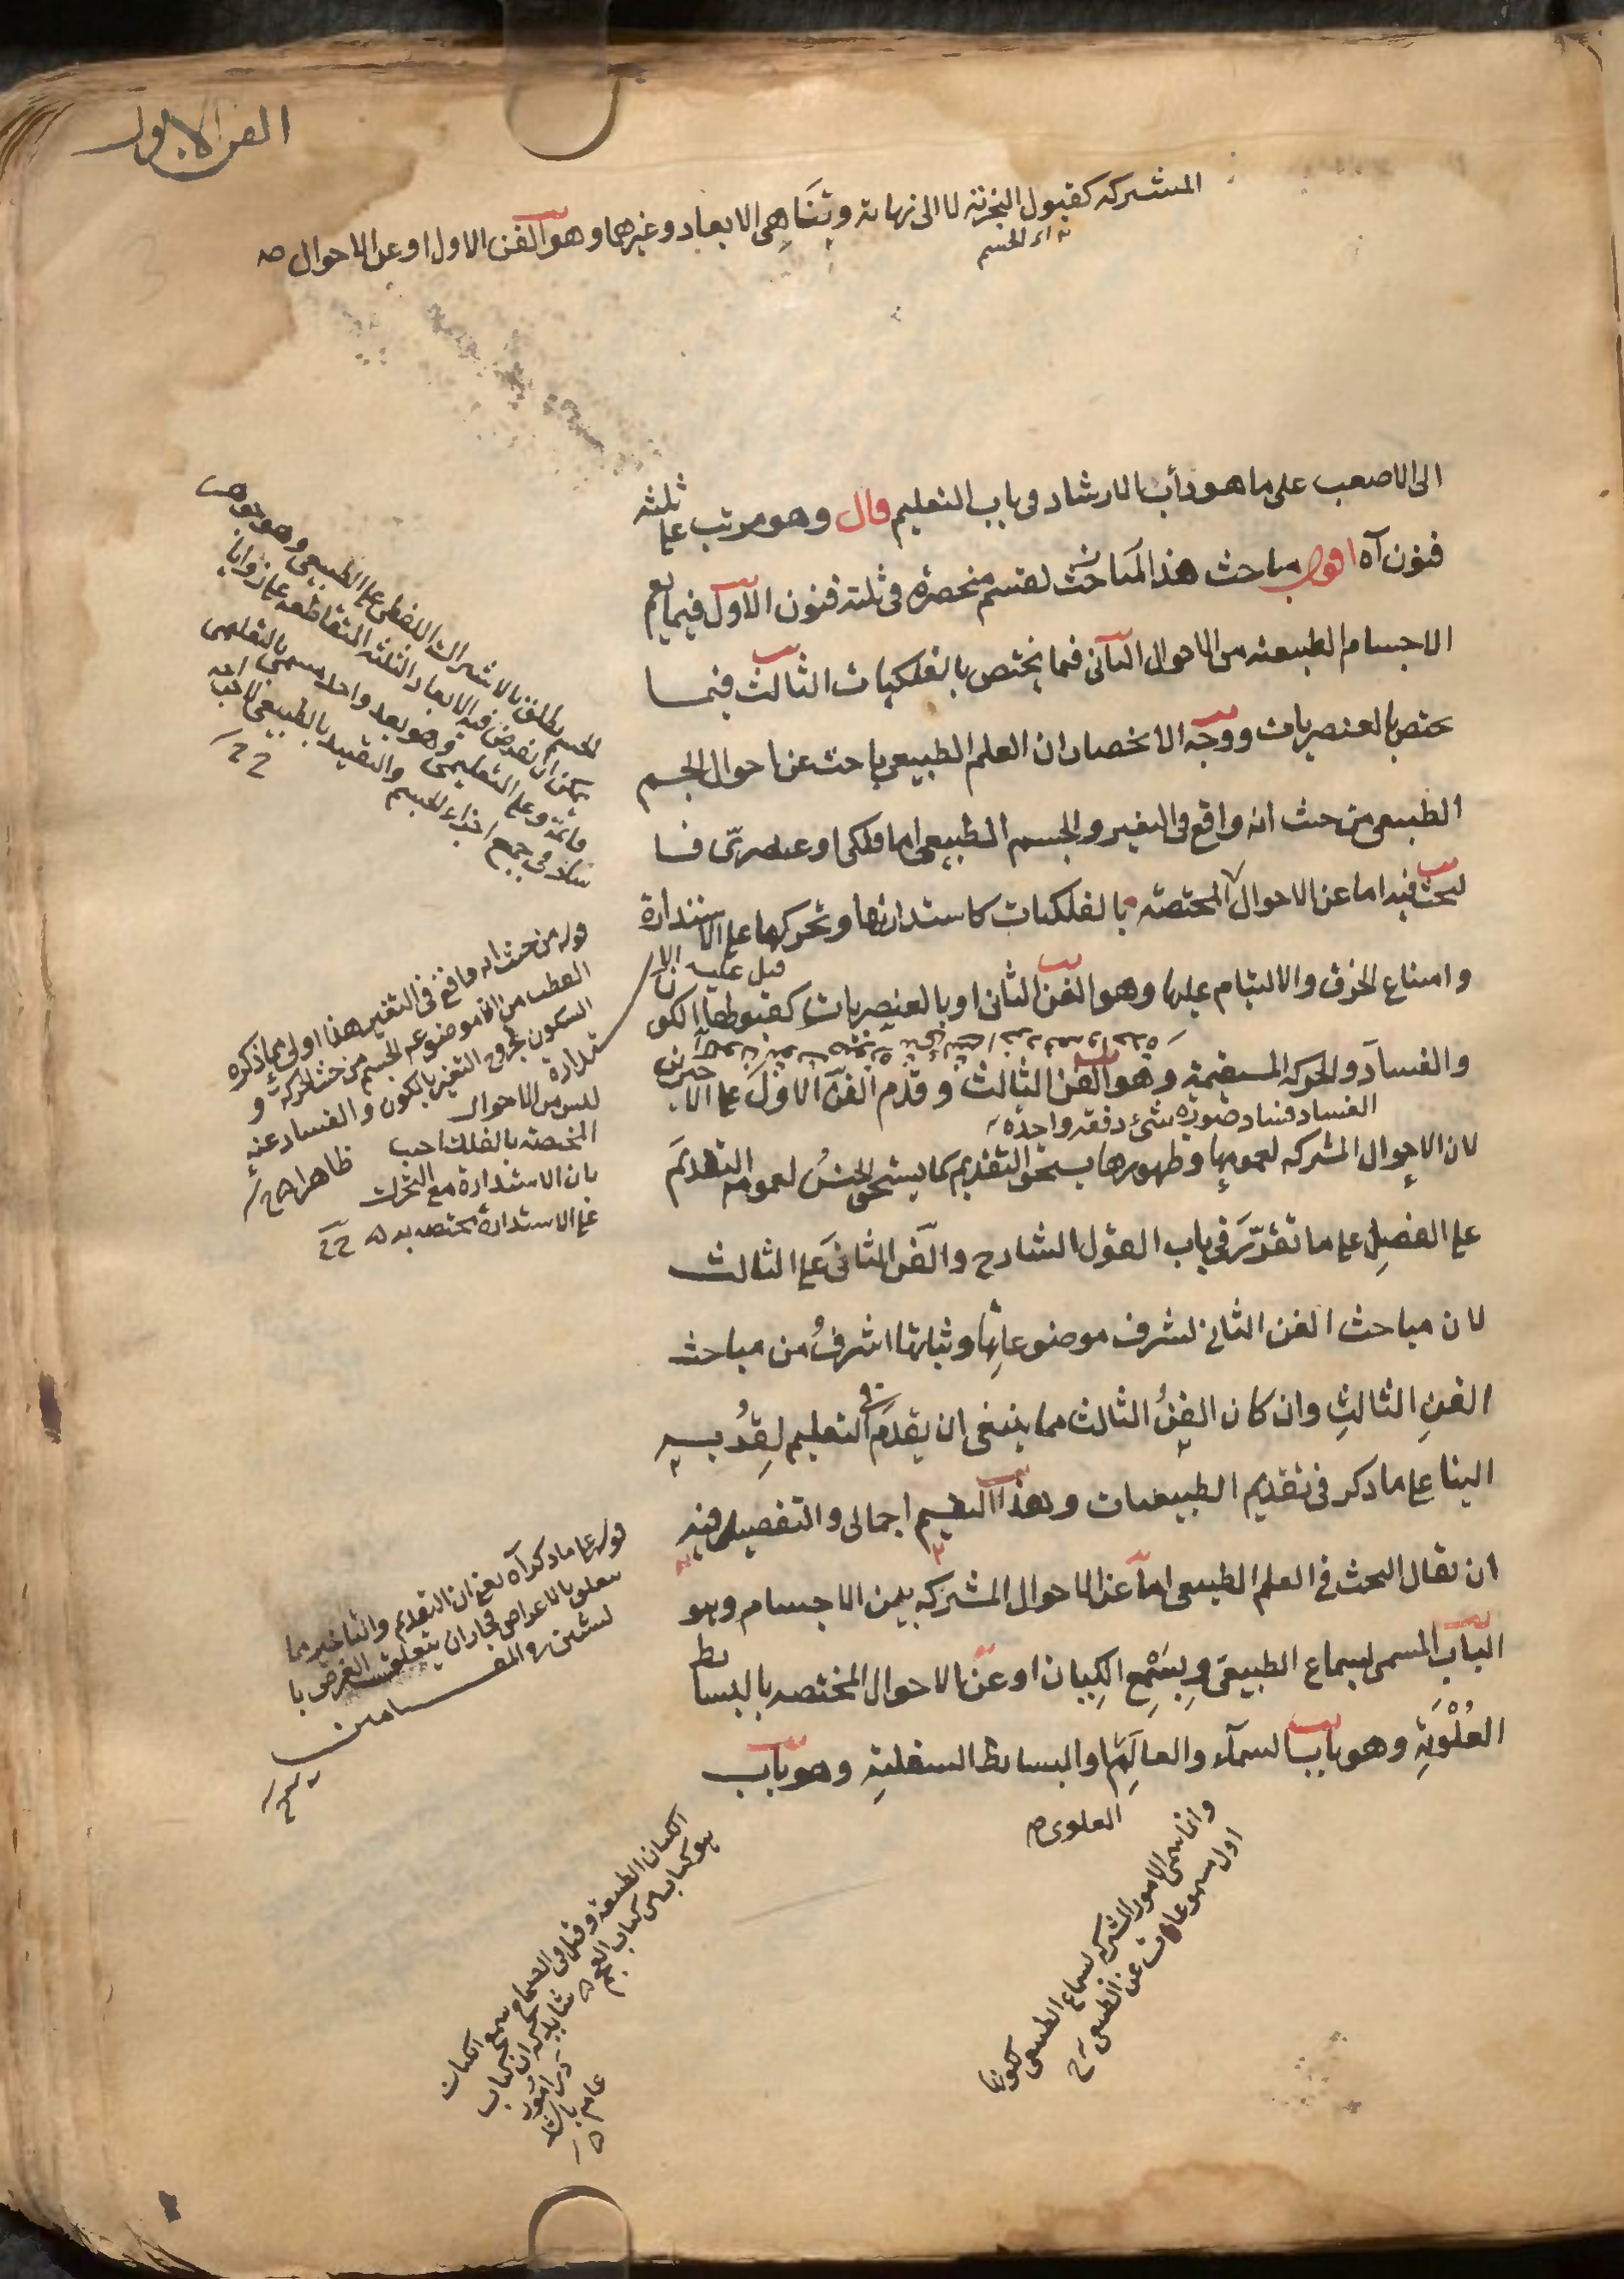 الفن الاول
المشتركه كقبول التجزئة لا الى نهاية وتناهى الابعاد وغيرهما وهو الفن الاول او عن الاحوال صه
اى الجسم
الى الاصعب على ما هو دأب الارشاد فى باب التعليم قال وهو مرتب على ثلثه
فنون آه اقول مباحث هذا القسم منحصرة فى ثلثة فنون الاول فيما يعم
الاجسام الطبيعية من الاحوال الثانى فيما يختص بالفلكيات الثالث فيما
يختص بالعنصريات ووجه الانحصار ان العلم الطبيعى باحث عن احوال الجسم
الطبيعى من حيث انه واقع فى التغير والجسم الطبيعى اما فلكى او عنصرىّ فا
لبحث فيه اما عن الاحوال المختصة بالفلكيات كاستدارتها وتحركها على الاستدارة
وامتناع الخرق والالتيام عليها وهو الفن الثانى او بالعنصريات كقبولها الكون
والفساد والحركة المستقيمة وهو الفن الثالث وقدم الفن الاول على الاخيرين
الفساد فساد صورة شىء دفعة واحدة
لان الاحوال المشتركه لعمومها وظهورها يستحق التقديم كما يستحق الجنسُ لعمومه التقديمَ
على الفصلِ على ما تقرّر فى باب القول الشارح والفن الثانى على الثالث
لان مباحث الفن الثانى لشرف موضوعاتِها وثباتها اشرفُ من مباحث
الفنِ الثالثِ وان كان الفنُ الثالث مما ينبغى ان يقدم فى التعليم لقُربه
الينا على ما ذكر فى تقديم الطبيعيات وهذا التقسيم اجمالى والتفصيل فيه
ان يقال البحث فى العلم الطبيعى اما عن الاحوال المشتركه بين الاجسام وهو
الباب المسمى بسماع الطبيعى وبِسَمْعِ الكِيان او عن الاحوال المختصه بالبسائط
العُلْوِيَةِ وهو باب السمآء والعالَم او البسائط السفلية وهو باب
العلوى
الجسم يطلق بالاشتراك اللفظى على الطبيعى وهو جوهر
يمكن ان يفرض فيه الابعاد الثلثه المتقاطعة على زوايا
قائمة وعلى التعليمى وهو بعد واحد يسمى بالتعليمى
فى جميع اجزاء الجسم والتقييد بالطبيعى
قوله من حيث انه واقع فى التغير هذا اولى مما ذكره
القطب من ان موضوعه الجسم من حيث الحركة و
السكون لخروج التغير بالكون والفساد عنه
ظاهرا
قيل عليه الا
ستدارة
ليس من الاحوال
المختصة بالفلك اجيب
بان الاستدارة مع التحرك
على الاستدارة مختصه به
قوله على ما ذكر آه يعنى ان التقديم والتأخير مما
يتعلق بالاغراض فجاز ان يتعلق الغرض با
لشيئين فى المقامين
وانما سمى الامور المشتركه بسماع الطبيعى لكونها
اول مسموعات عن الطبيعى
الكيان الطبيعة وقيل فى الصحاح سمع الكيان
هو كتاب من كتاب العجم